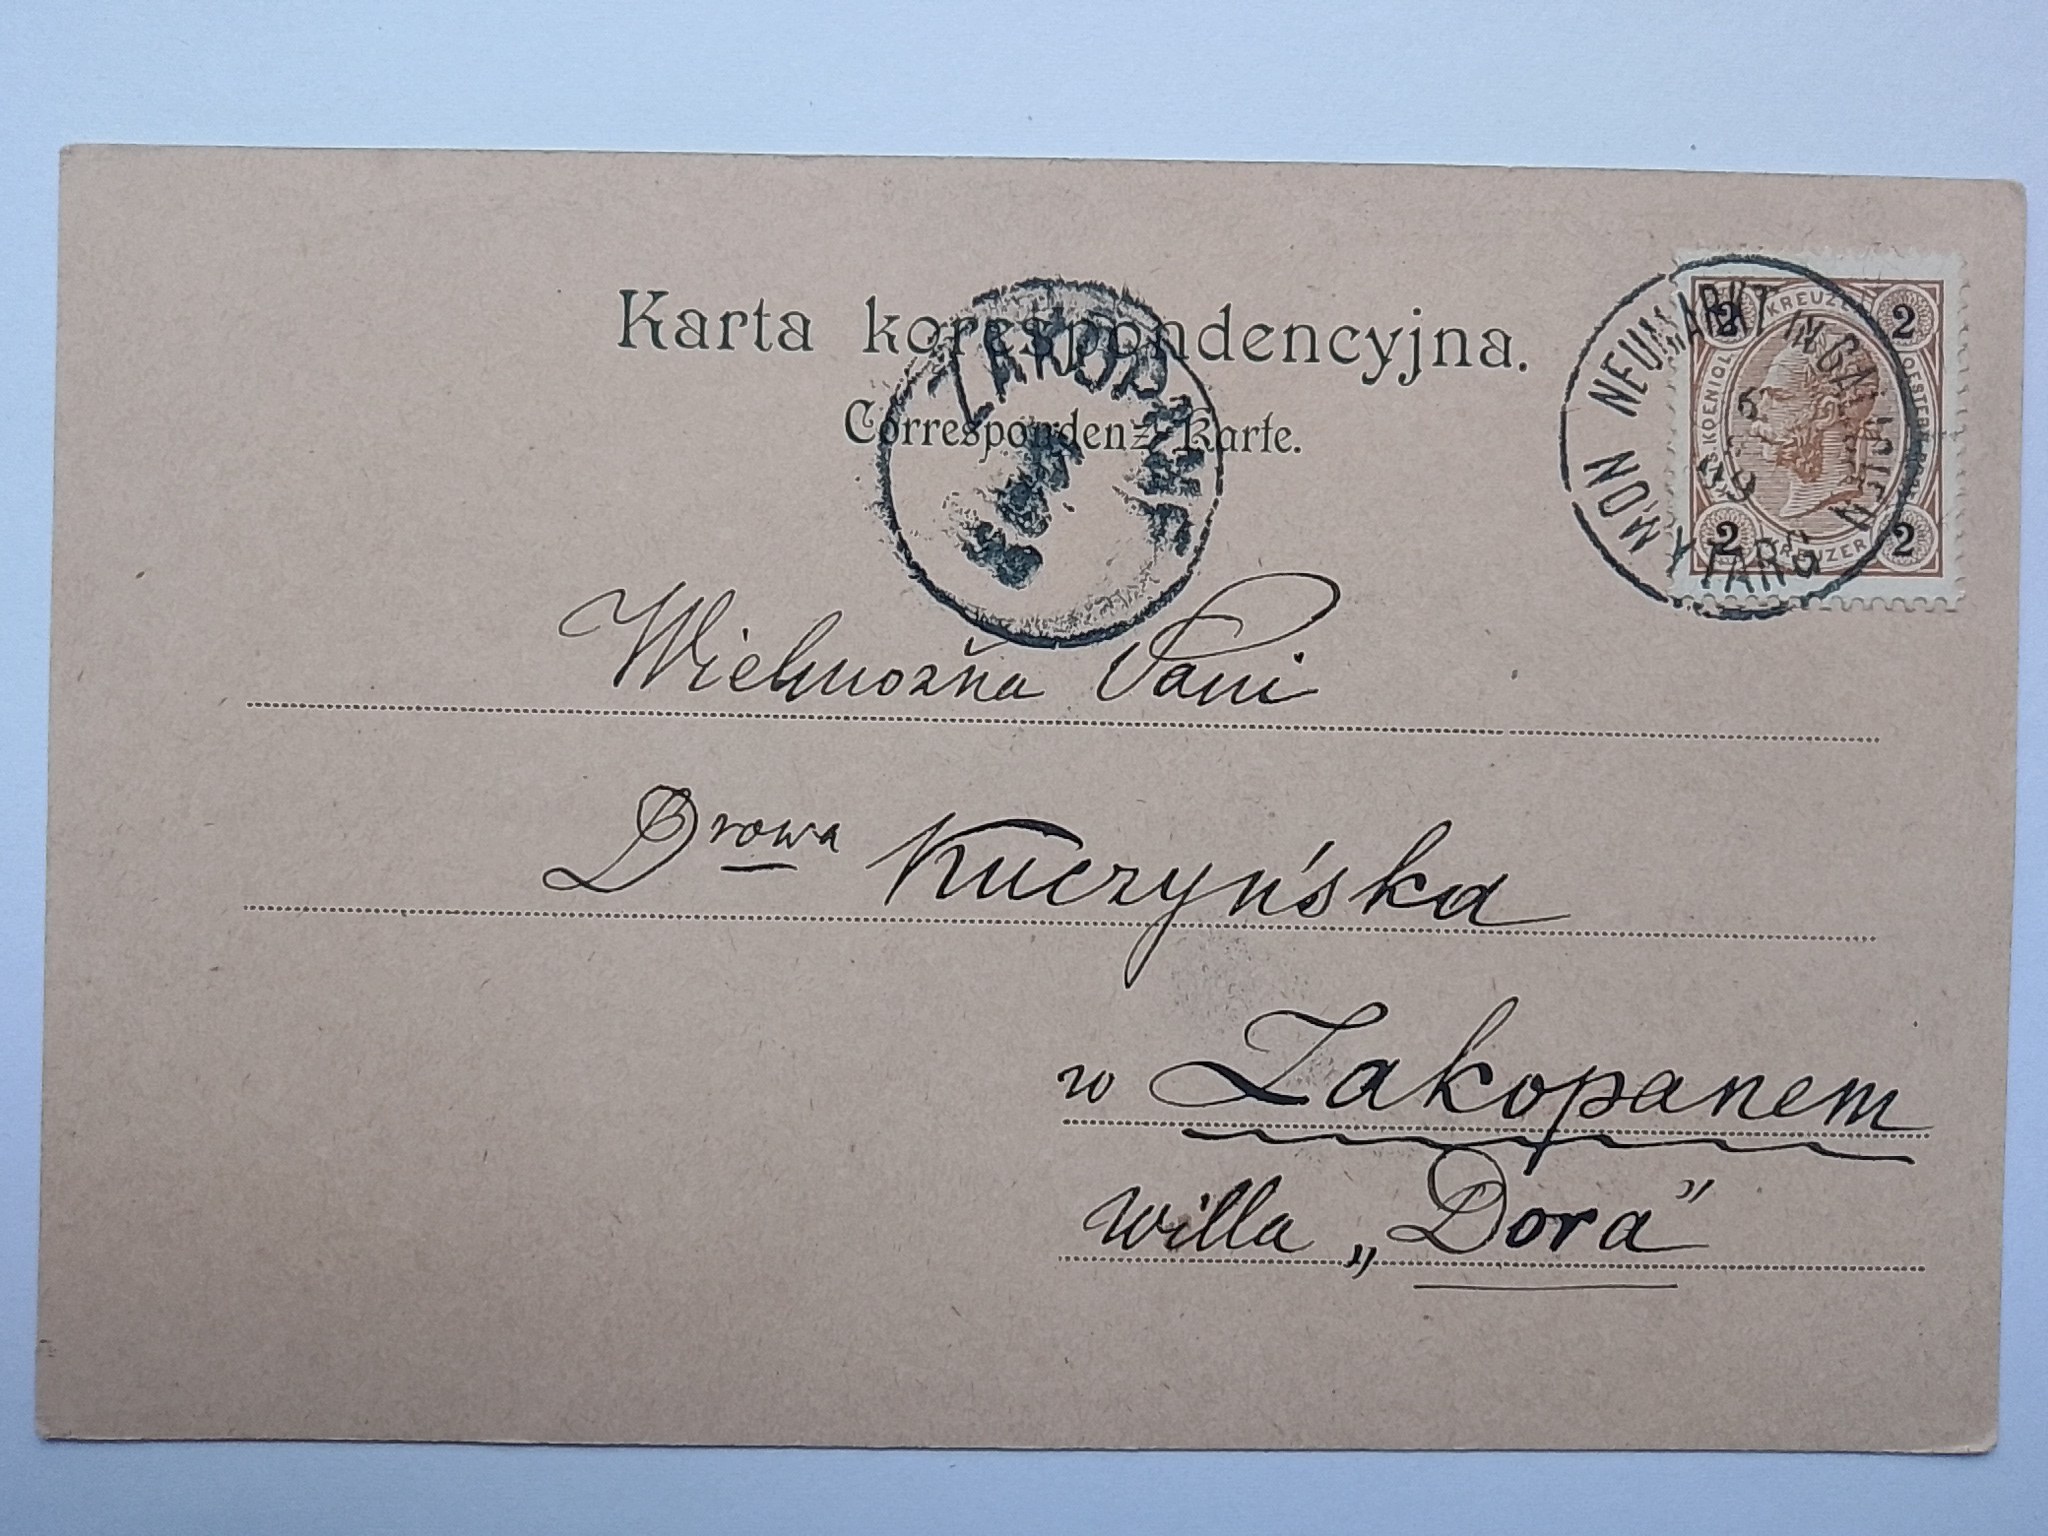 Karta korespondencyjna.
Correspondenz-Karte.
ZAKOPANE
NEUMARKT IN GALIZIEN
NOWY TARG
99
2 KREUZER 2
2 KREUZER 2
Wielmożna Pani
Drowa Kuczyńska
w Zakopanem
willa „Dora”